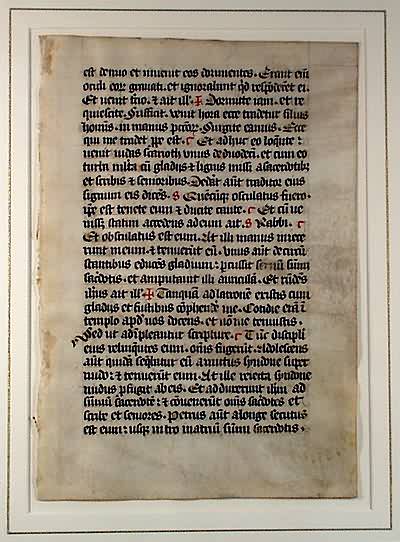 est denuo et inuenit eos dormientes. Erant eni
oculi eoꝝ grauati. et ignorabant qd respoderet ei.
Et uenit tercio. & ait ill. ✠ Dormite iam. et re
quiescite. Sufficit. venit hora ecce tradetur filius
hominis. in manus pctoꝝ. Surgite eamus. Ecce
qui me tradet ꝓpe est. C Et adhuc eo loquete :
uenit iudas scarioth vnus de duodeci. et cum eo
turba multa cu gladijs & lignis missi a sacerdotibꝫ
et scribis & senioribus. Dedat aut traditor eius
signum eis dicens. S Quecuqꝫ osculatus fuero.
ipse est tenete eum & ducite caute. C Et cu ue
nisset statim accedens ad eum ait. S Rabbi. C
Et osculatus est eum. At illi manus iniece
runt in eum. & tenuerut eu. Vnus aut de circu
stantibus educes gladium : percussit seruu sumi
sacerdotis. et amputauit illi auricula. Et rndes
ihus ait ill. ✠ Tanquā ad latrone existis cum
gladijs et fustibus cophendere me. Cotidie era i
templo apd uos docens. et no me tenuistis.
Sed ut adimpleantur scripture. C Tuc discipli
eius relinquetes eum. oms fugerut. Adolescens
aut quida sequebatur eu amictus syndone super
nudo : & tenuerut eum. At ille reiecta syndone
nudus profugit ab eis. Et adduxerunt ihm ad
summu sacerdote : & conuenerut oms sacdotes et
scribe et seniores. Petrus aut a longe secutus
est eum : usqꝫ intro in atriu summi sacerdotis.